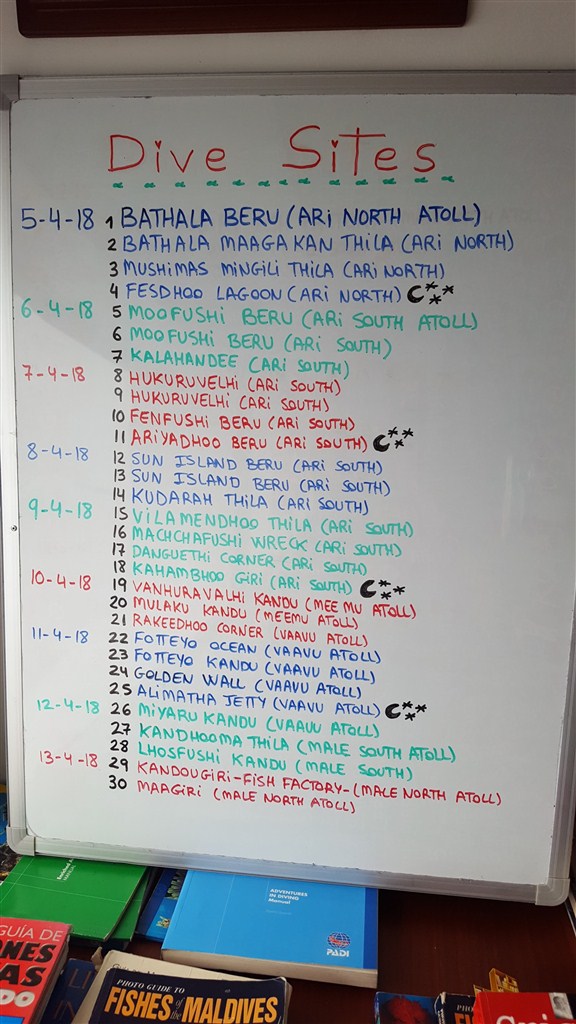 Dive Sites
5-4-18 1 BATHALA BERU (ARI NORTH ATOLL)
2 BATHALA MAAGA KAN THILA (ARI NORTH)
3 MUSHIMAS MINGILI THILA (ARI NORTH)
4 FESDHOO LAGOON (ARI NORTH)
6-4-18 5 MOOFUSHI BERU (ARI SOUTH ATOLL)
6 MOOFUSHI BERU (ARI SOUTH)
7 KALAHANDEE (ARI SOUTH)
7-4-18 8 HUKURUVELHI (ARI SOUTH)
9 HUKURUVELHI (ARI SOUTH)
10 FENFUSHI BERU (ARI SOUTH)
11 ARIYADHOO BERU (ARI SOUTH)
8-4-18 12 SUN ISLAND BERU (ARI SOUTH)
13 SUN ISLAND BERU (ARI SOUTH)
14 KUDARAH THILA (ARI SOUTH)
9-4-18 15 VILAMENDHOO THILA (ARI SOUTH)
16 MACHCHAFUSHI WRECK (ARI SOUTH)
17 DANGUETHI CORNER (ARI SOUTH)
18 KAHAMBHOO GIRI (ARI SOUTH)
10-4-18 19 VANHURAVALHI KANDU (MEEMU ATOLL)
20 MULAKU KANDU (MEEMU ATOLL)
21 RAKEEDHOO CORNER (VAAVU ATOLL)
11-4-18 22 FOTTEYO OCEAN (VAAVU ATOLL)
23 FOTTEYO KANDU (VAAVU ATOLL)
24 GOLDEN WALL (VAAVU ATOLL)
25 ALIMATHA JETTY (VAAVU ATOLL)
12-4-18 26 MIYARU KANDU (VAAVU ATOLL)
27 KANDHOOMA THILA (MALE SOUTH ATOLL)
28 LHOSFUSHI KANDU (MALE SOUTH)
13-4-18 29 KANDOUGIRI-FISH FACTORY-(MALE NORTH ATOLL)
30 MAAGIRI (MALE NORTH ATOLL)
ADVENTURES
IN DIVING
Manual
PADI
GUÍA DE
PHOTO GUIDE TO
FISHES of the MALDIVES
PHOTO